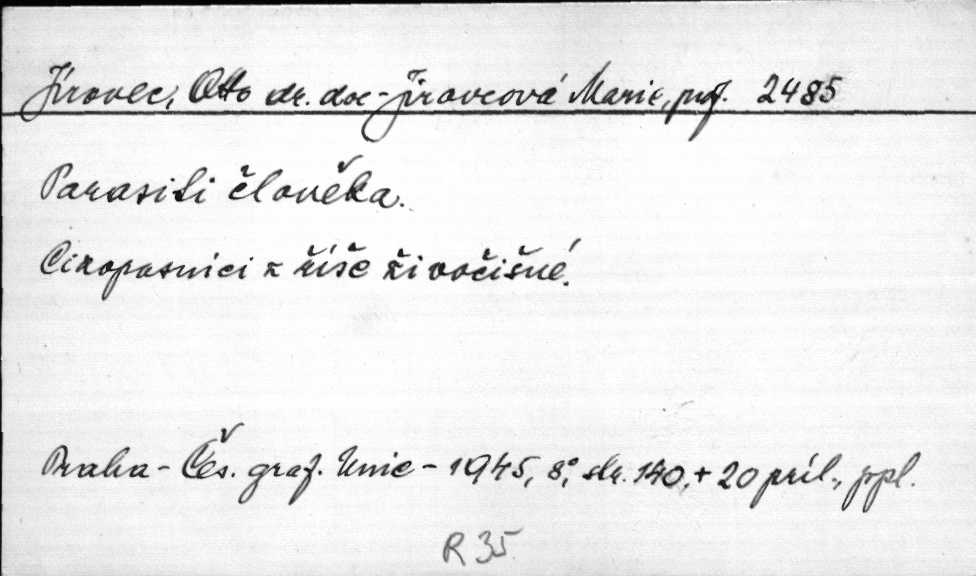 Jírovec, Otto dr. doc - Jírovcová Marie, prof. 2485
Parasiti člověka.
Cizopasníci z říše živočišné.
Praha - Čes. graf. Unie - 1945, 8°, str. 140, + 20 príl., ppl.
R 35